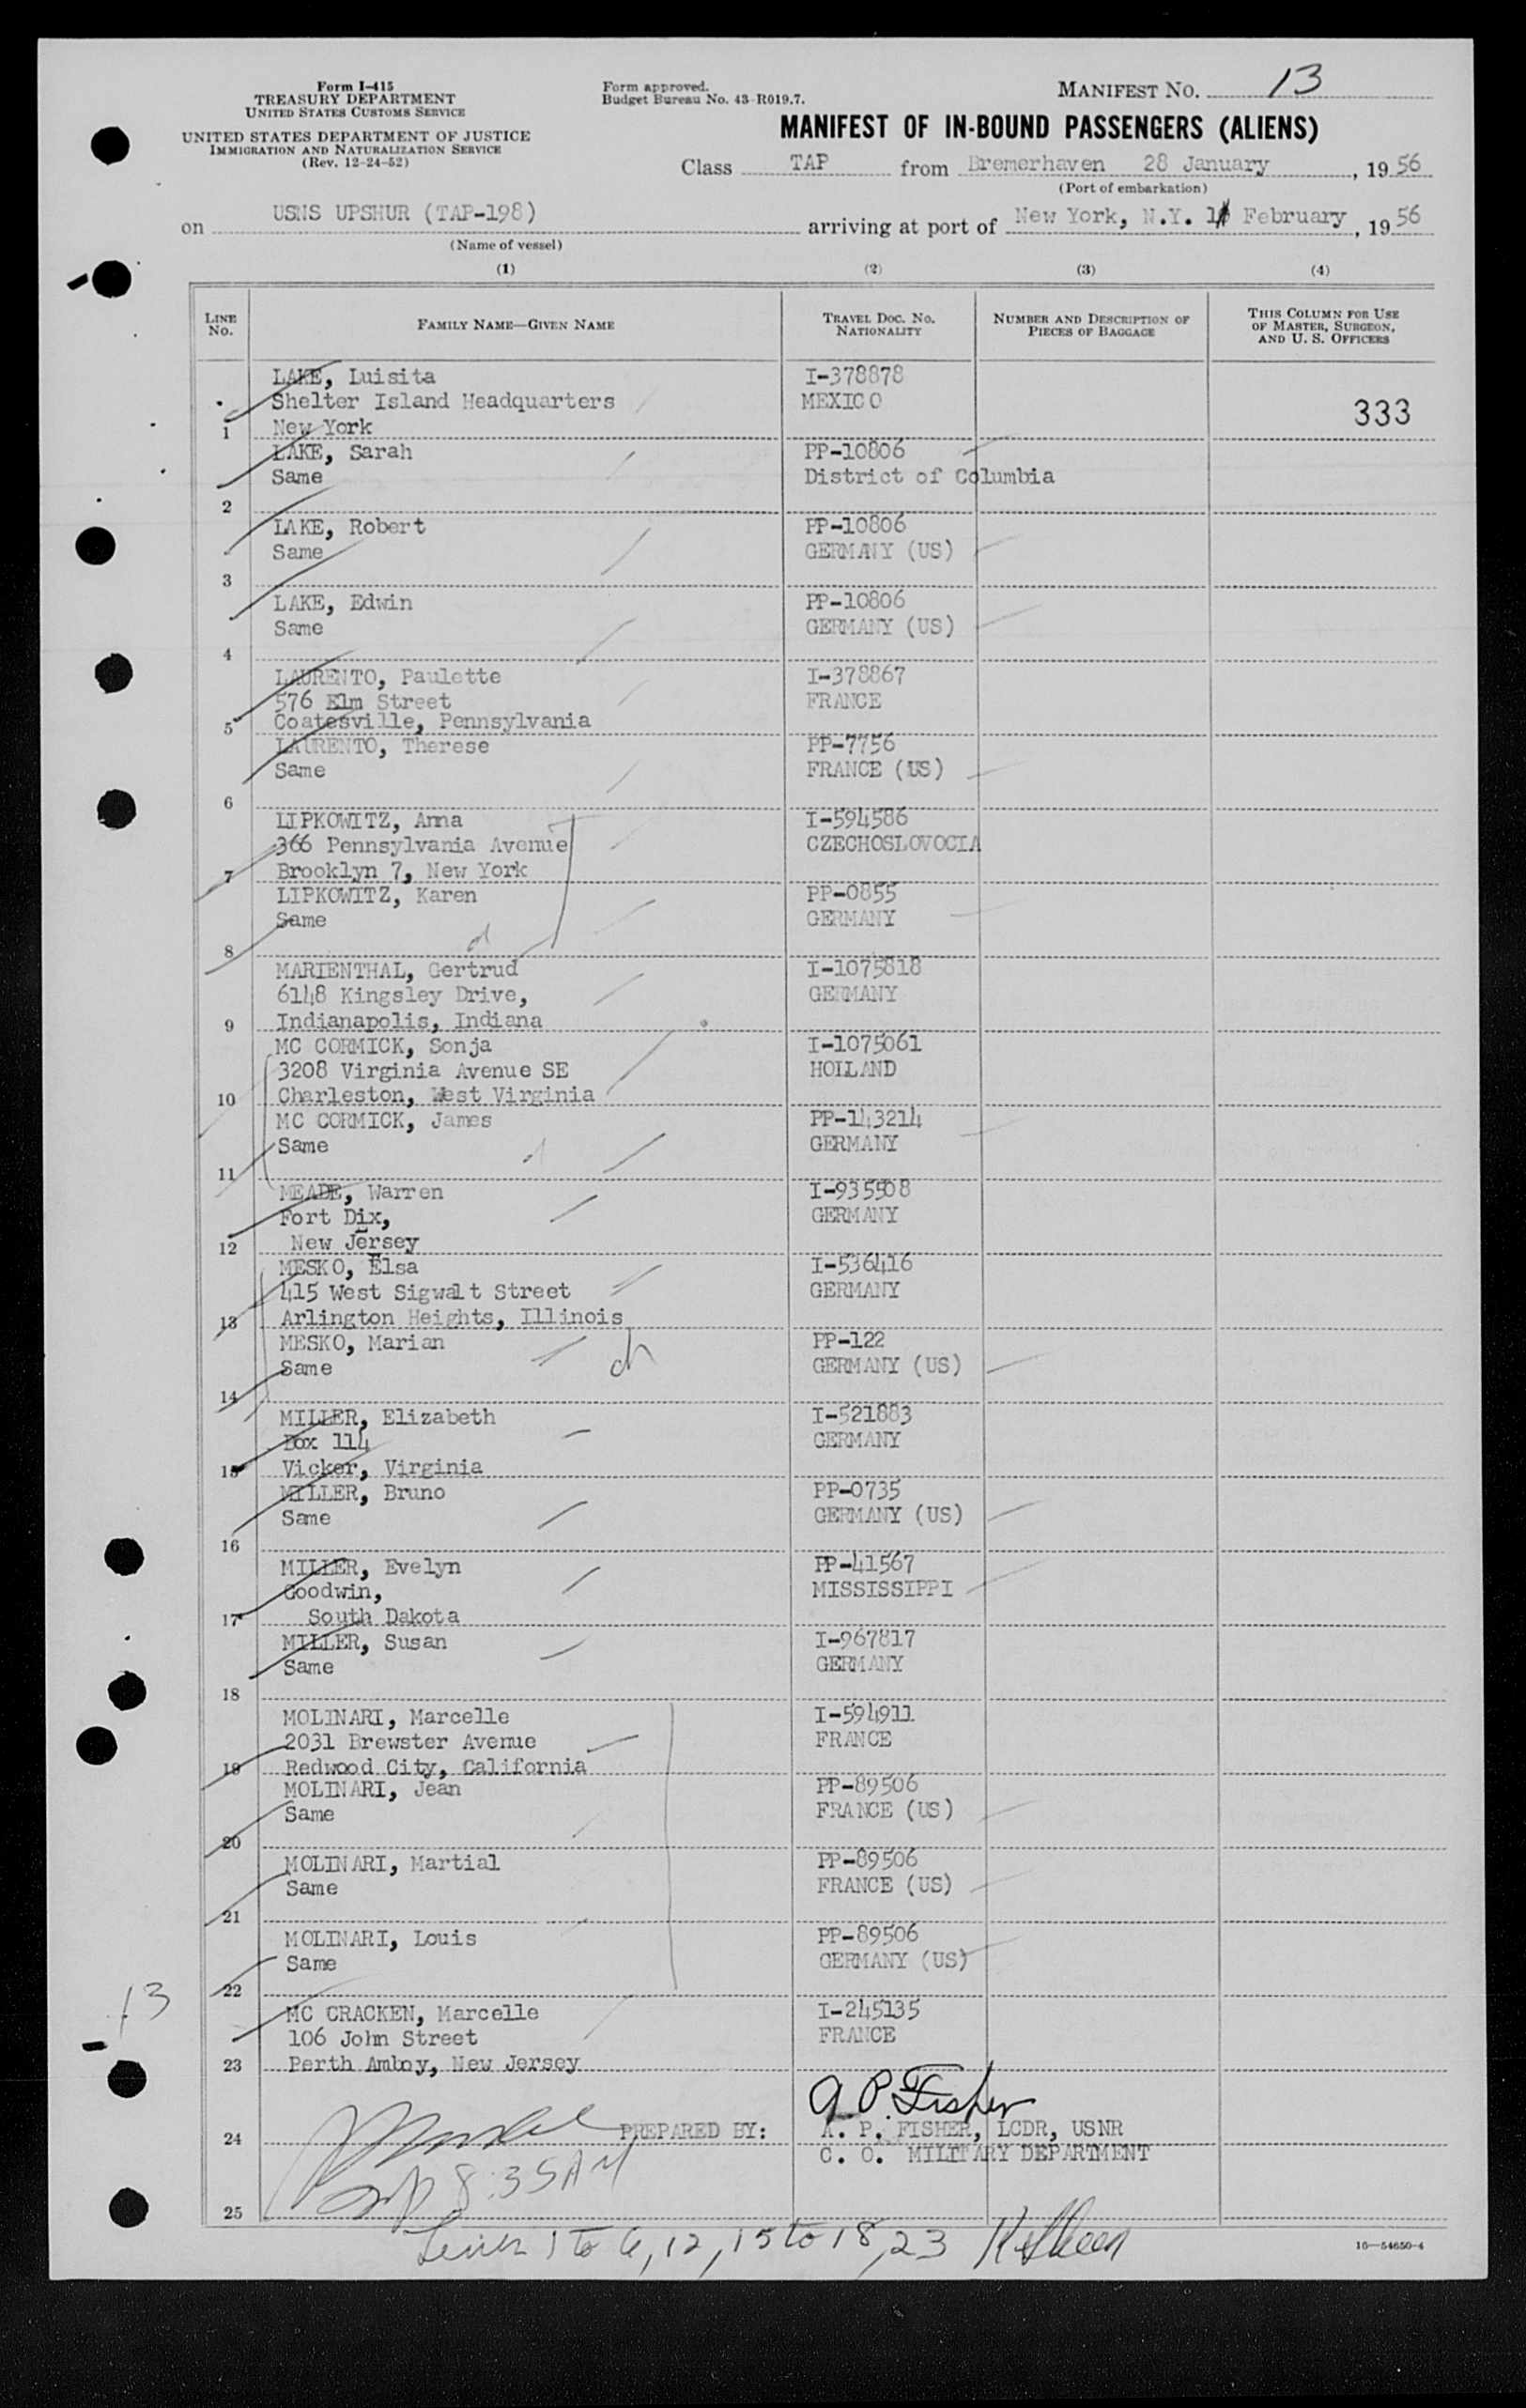 Form I-415
TREASURY DEPARTMENT
UNITED STATES CUSTOMS SERVICE
UNITED STATES DEPARTMENT OF JUSTICE
IMMIGRATION AND NATURALIZATION SERVICE
(Rev. 12-24-52)
Form approved.
Budget Bureau No. 43-R019.7.
MANIFEST NO. 13
MANIFEST OF IN-BOUND PASSENGERS (ALIENS)
Class TAP from Bremerhaven 28 January, 1956
(Port of embarkation)
on USNS UPSHUR (TAP-198) arriving at port of New York, N.Y. February, 1956
(Name of vessel)
(1) (2) (3) (4)
LINE NO. FAMILY NAME—GIVEN NAME TRAVEL DOC. NO. NATIONALITY NUMBER AND DESCRIPTION OF PIECES OF BAGGAGE THIS COLUMN FOR USE OF MASTER, SURGEON, AND U. S. OFFICERS
LAKE, Luisita I-378878
Shelter Island Headquarters MEXICO 333
1 New York
LAKE, Sarah PP-10806
Same District of Columbia
2
LAKE, Robert PP-10806
Same GERMANY (US)
3
LAKE, Edwin PP-10806
Same GERMANY (US)
4
LAURENTO, Paulette I-378867
576 Elm Street FRANCE
5 Coatesville, Pennsylvania
LAURENTO, Therese PP-7756
Same FRANCE (US)
6
LIPKOWITZ, Anna I-594586
366 Pennsylvania Avenue CZECHOSLOVOCIA
7 Brooklyn 7, New York
LIPKOWITZ, Karen PP-0855
Same GERMANY
8
MARIENTHAL, Gertrud I-1075818
6148 Kingsley Drive, GERMANY
9 Indianapolis, Indiana
MC CORMICK, Sonja I-1075061
3208 Virginia Avenue SE HOLLAND
10 Charleston, West Virginia
MC CORMICK, James PP-143214
Same GERMANY
11
MEADE, Warren I-935508
Fort Dix, GERMANY
12 New Jersey
MESKO, Elsa I-536416
415 West Sigwalt Street GERMANY
13 Arlington Heights, Illinois
MESKO, Marian PP-122
Same ch GERMANY (US)
14
MILLER, Elizabeth I-521883
Box 114 GERMANY
15 Vicker, Virginia
MILLER, Bruno PP-0735
Same GERMANY (US)
16
MILLER, Evelyn PP-41567
Goodwin, MISSISSIPPI
17 South Dakota
MILLER, Susan I-967817
Same GERMANY
18
MOLINARI, Marcelle I-594911
2031 Brewster Avenue FRANCE
19 Redwood City, California
MOLINARI, Jean PP-89506
Same FRANCE (US)
20
MOLINARI, Martial PP-89506
Same FRANCE (US)
21
MOLINARI, Louis PP-89506
Same GERMANY (US)
22
13
MC CRACKEN, Marcelle I-245135
106 John Street FRANCE
23 Perth Amboy, New Jersey
A. P. Fisher
24 PREPARED BY: A. P. FISHER, LCDR, USNR
C. O. MILITARY DEPARTMENT
8:35AM
25
1 to 6, 12, 15 to 18, 23
16—54650-4